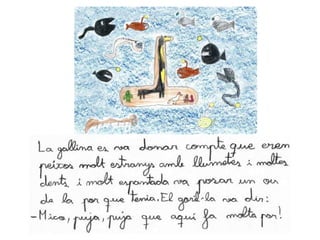 La gallina es va donar compte que eren
peixos molt estranys amb llumetes i moltes
dents i molt espantada va posar un ou
de la por que tenia. El goril·la va dir:
-Mico, puja, puja que aquí fa molta por!